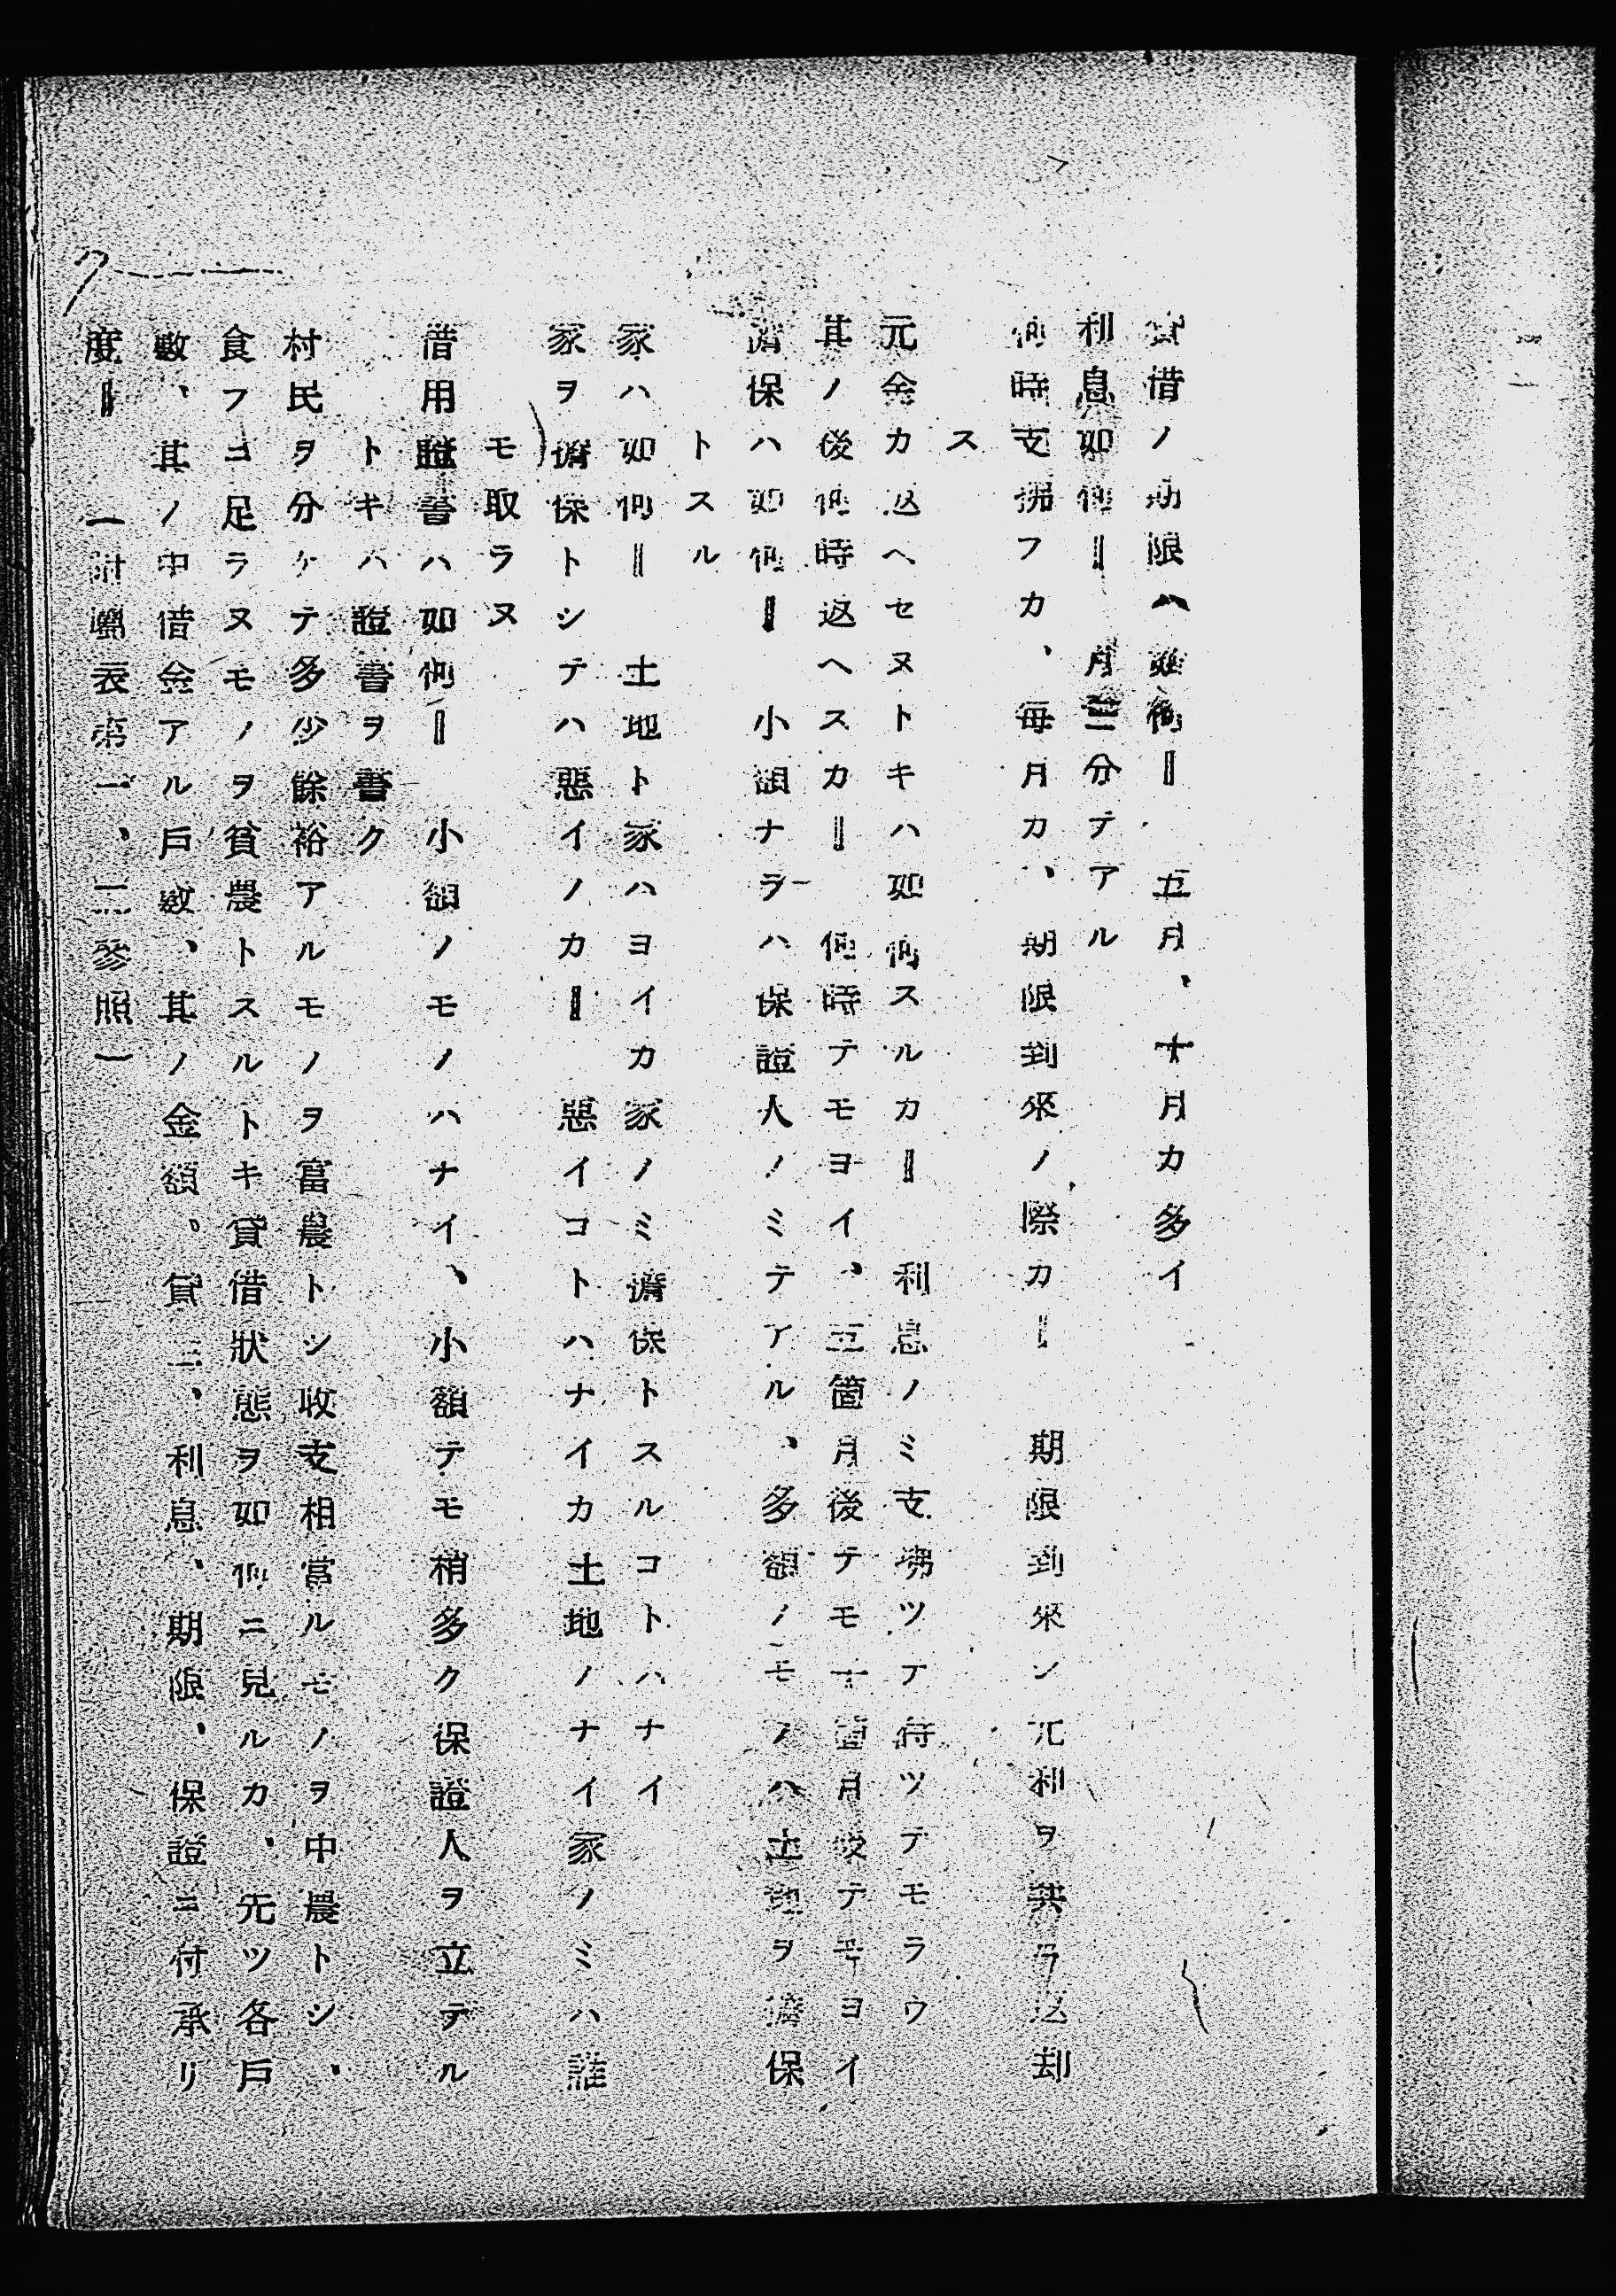 貸借ノ期限ハ如何＝　五月、十月カ多イ
利息如何＝　月三分テアル
何時支拂フカ、毎月カ、期限到來ノ際カ＝　期限到來ノ元利ヲ共ニ返却
ス
元金カ返ヘセヌトキハ如何スルカ＝　利息ノミ支拂ツテ待ツテモラウ
其ノ後何時返ヘスカ＝　何時テモヨイ、五箇月後テモ十箇月後テモヨイ
擔保ハ如何＝　小額ナラハ保證人ノミテアル、多額ノモノハ土地ヲ擔保
トスル
家ハ如何＝　土地ト家ハヨイカ家ノミ擔保トスルコトハナイ
家ヲ擔保トシテハ惡イノカ＝　惡イコトハナイカ土地ノナイ家ノミハ誰
モ取ラヌ
借用證書ハ如何＝　小額ノモノハナイ、小額テモ稍多ク保證人ヲ立テル
トキハ證書ヲ書ク
村民ヲ分ケテ多少餘裕アルモノヲ富農トシ收支相當ルモノヲ中農トシ、
食フニ足ラヌモノヲ貧農トスルトキ貸借狀態ヲ如何ニ見ルカ、先ツ各戶
數、其ノ中借金アル戶數、其ノ金額、貸主、利息、期限、保證ニ付承リ
度＝　（附屬表第一、二參照）